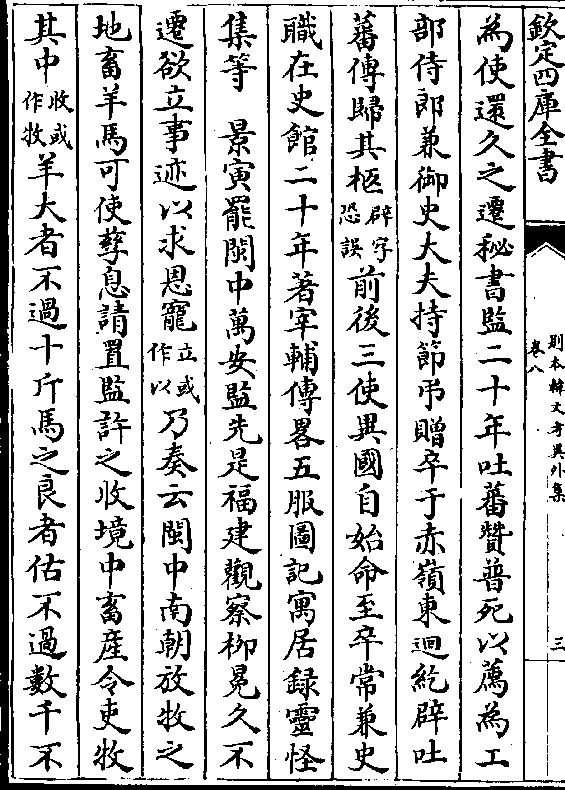 欽定四庫全書
別本韓文考異外集
卷八
三
為使還久之遷秘書監二十年吐蕃贊普死以薦為工
部侍郎兼御史大夫持節弔贈卒于赤嶺東迴紇辟吐
蕃傳歸其柩辟字恐誤前後三使異國自始命至卒常兼史
職在史館二十年著宰輔傳畧五服圖記寓居録靈怪
集等　景寅罷閩中萬安監先是福建觀察柳冕久不
遷欲立事迹以求恩寵立或作以乃奏云閩中南朝放牧之
地畜羊馬可使孳息請置監許之收境中畜産令吏牧
其中收或作牧羊大者不過十斤馬之良者估不過數千不